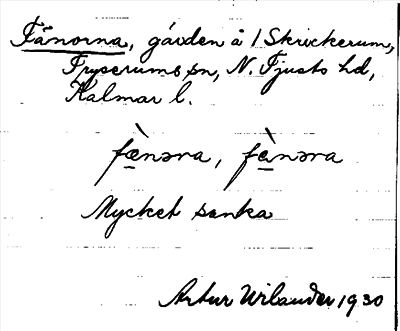 Fänorna, gården å 1 Skrickerum,
Tryserums sn, N. Tjusts hd,
Kalmar l.
fæ̀nəra, fæ̀nəra
Mycket sanka
Artur Wilander 1930